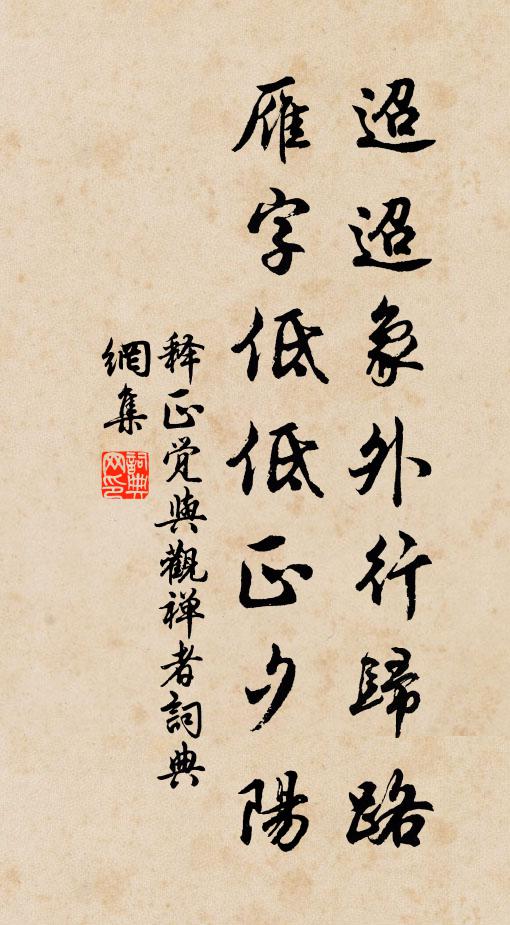 迢迢象外行歸路
雁字低低正夕陽
释正覚與觀禅者詞典
網集
詞典網印